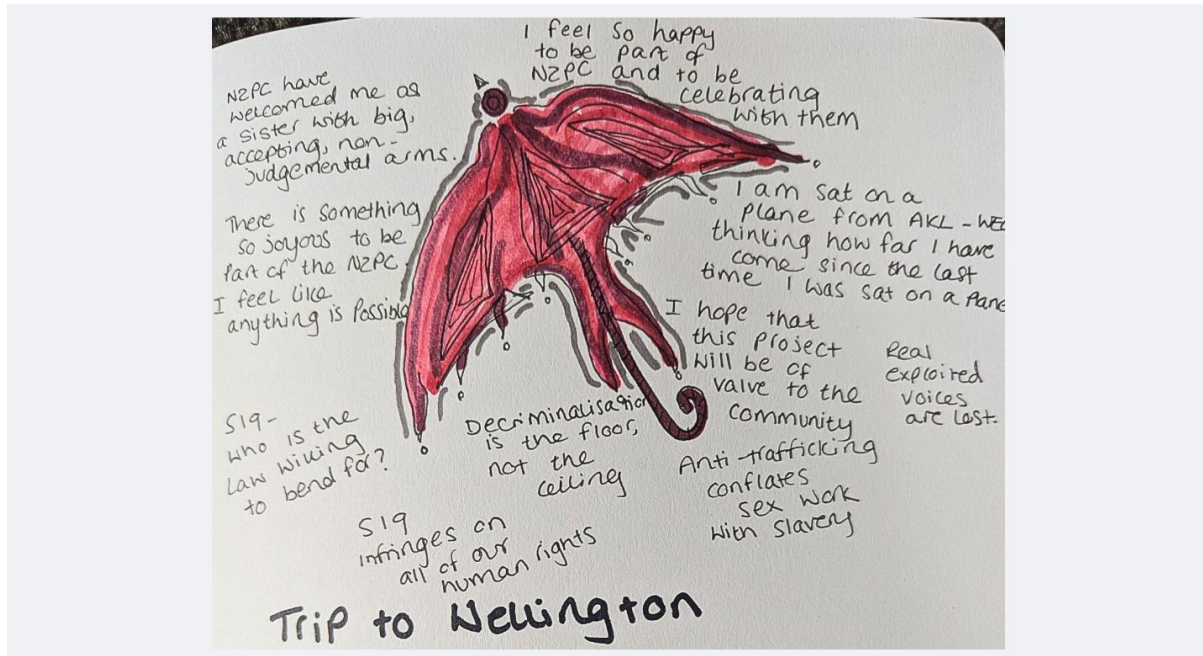 I feel so happy
to be part of
NZPC and to be
celebrating
with them
NZPC have
welcomed me as
a sister with big,
accepting, non-
judgemental arms.
There is something
so joyous to be
part of the NZPC.
I feel like
anything is possible
I am sat on a
plane from AKL - WEL
thinking how far I have
come since the last
time I was sat on a plane
I hope that
this project
will be of
value to the
community
Real
exploired
voices
are lost.
S19-
who is the
law willing
to bend for?
Decriminalisation
is the floor,
not the
ceiling
Anti trafficking
conflates
sex work
with slavery
S19
infringes on
all of our
human rights
Trip to Wellington